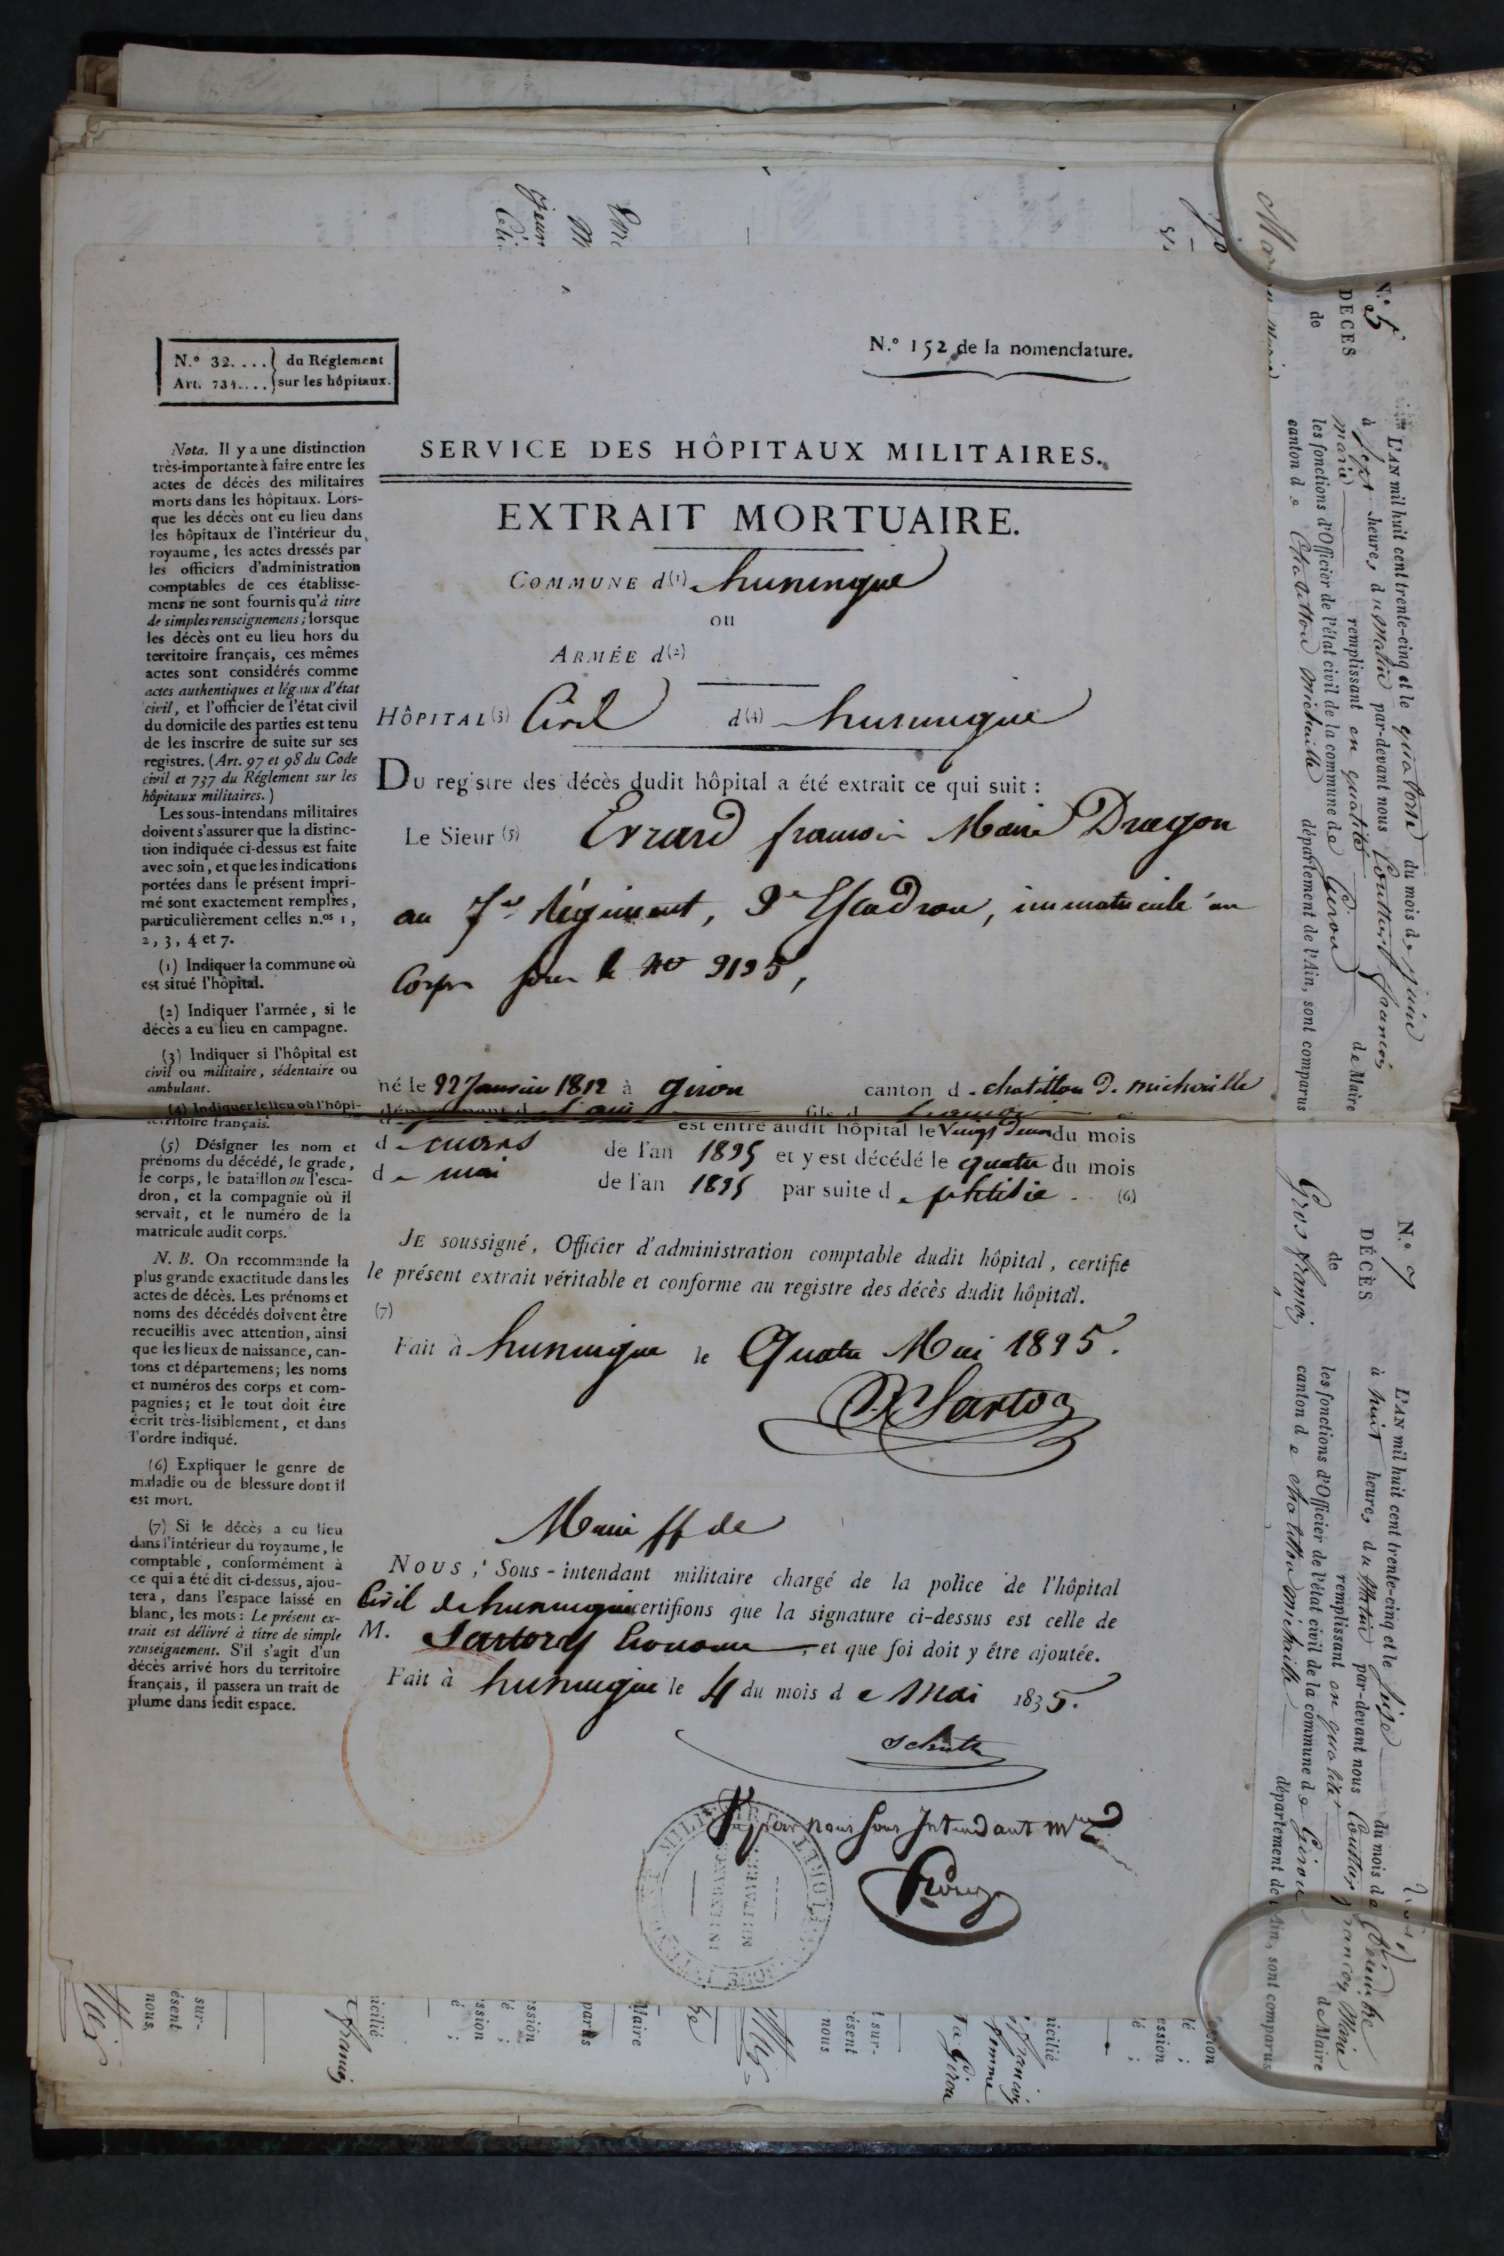 N.º 32.... du Réglement
Art. 734.... sur les hôpitaux.
N.º 152 de la nomenclature.
SERVICE DES HÔPITAUX MILITAIRES.
EXTRAIT MORTUAIRE.
COMMUNE d(1) huningue
ou
ARMÉE d(2)
HÔPITAL(3) Civil d(4) huningue
DU registre des décès dudit hôpital a été extrait ce qui suit :
Le Sieur (5) Evrard francois Marie Dragon
au 7e Régiment, Escadron, immatriculé au
Corps sous le No
né le Janvier à giron canton d chatillon d. michaille
est entré audit hôpital le du mois
d mars de l'an et y est décédé le quatre du mois
d e mai de l'an par suite d e phtisie. (6)
JE soussigné, Officier d'administration comptable dudit hôpital, certifie
le présent extrait véritable et conforme au registre des décès dudit hôpital.
(7)
Fait à huningue le Quatre Mai
Sartory
Maire ff de
NOUS, Sous-intendant militaire chargé de la police de l'hôpital
Civil de huningue certifions que la signature ci-dessus est celle de
M. Sartory Econome, et que foi doit y être ajoutée.
Fait à huningue le 4 du mois d e Mai 1835.
Vu par nous Sous Intendant mre
Nota. Il y a une distinction
très-importante à faire entre les
actes de décès des militaires
morts dans les hôpitaux. Lors-
que les décès ont eu lieu dans
les hôpitaux de l'intérieur du
royaume, les actes dressés par
les officiers d'administration
comptables de ces établisse-
mens ne sont fournis qu'à titre
de simples renseignemens; lorsque
les décès ont eu lieu hors du
territoire français, ces mêmes
actes sont considérés comme
actes authentiques et légaux d'état
civil, et l'officier de l'état civil
du domicile des parties est tenu
de les inscrire de suite sur ses
registres. (Art. 97 et 98 du Code
civil et 737 du Réglement sur les
hôpitaux militaires.)
Les sous-intendans militaires
doivent s'assurer que la distinc-
tion indiquée ci-dessus est faite
avec soin, et que les indications
portées dans le présent impri-
mé sont exactement remplies,
particulièrement celles n.os 1,
2, 3, 4 et 7.
(1) Indiquer la commune où
est situé l'hôpital.
(2) Indiquer l'armée, si le
décès a eu lieu en campagne.
(3) Indiquer si l'hôpital est
civil ou militaire, sédentaire ou
ambulant.
(4) Indiquer le lieu où l'hôpi-
territoire français.
(5) Désigner les nom et
prénoms du décédé, le grade,
le corps, le bataillon ou l'esca-
dron, et la compagnie où il
servait, et le numéro de la
matricule audit corps.
N. B. On recommande la
plus grande exactitude dans les
actes de décès. Les prénoms et
noms des décédés doivent être
recueillis avec attention, ainsi
que les lieux de naissance, can-
tons et départemens; les noms
et numéros des corps et com-
pagnies; et le tout doit être
écrit très-lisiblement, et dans
l'ordre indiqué.
(6) Expliquer le genre de
maladie ou de blessure dont il
est mort.
(7) Si le décès a eu lieu
dans l'intérieur du royaume, le
comptable, conformément à
ce qui a été dit ci-dessus, ajou-
tera, dans l'espace laissé en
blanc, les mots: Le présent ex-
trait est délivré à titre de simple
renseignement. S'il s'agit d'un
décès arrivé hors du territoire
français, il passera un trait de
plume dans ledit espace.
N.º 5
DÉCÈS
de
L'AN mil huit cent trente-cinq et le quatorze du mois de juin
à heures du Matin par-devant nous francois
marie remplissant en qualité de Maire
les fonctions d'Officier de l'état civil de la commune de Giron
canton de Chatillon michaille département de l'Ain, sont comparus
N.º 7
DÉCÈS
de
Gros francois
L'AN mil huit cent trente-cinq et le du mois de
à huit heures du Matin par-devant nous francois Marie
remplissant en qualité de Maire
les fonctions d'Officier de l'état civil de la commune de Giron
canton de chatillon michaille département de l'Ain, sont comparus